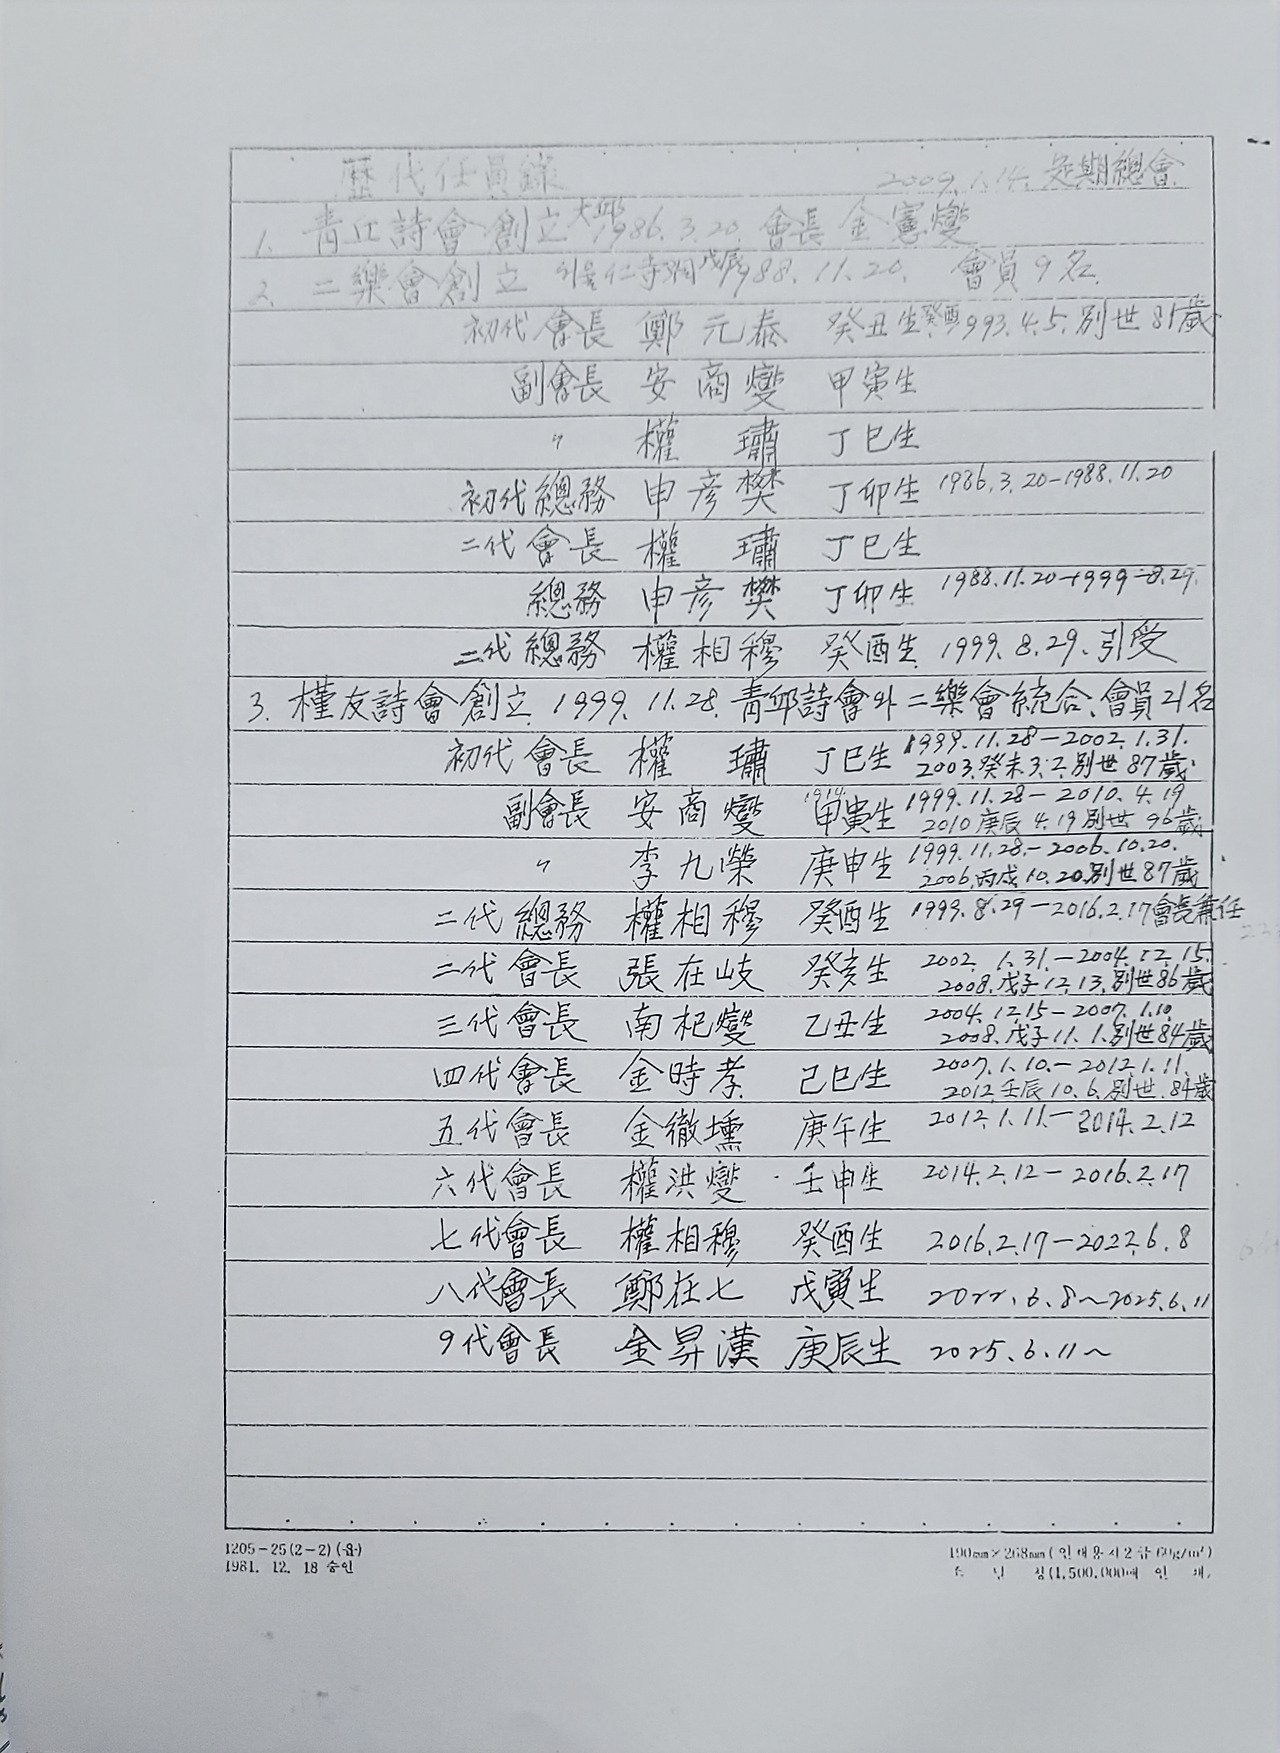 歷代任員錄 2009.1.14. 定期總會
1. 靑丘詩會創立 大邱 1986.3.20. 會長 金憲燮
2. 二樂會創立 서울 仁寺洞 戊辰 1988.11.20. 會員 9名
初代會長 鄭元泰 癸丑生 癸酉 1993.4.5. 別世 81歲
副會長 安商燮 甲寅生
〃 權 璛 丁巳生
初代總務 申彦樊 丁卯生 1986.3.20-1988.11.20
二代會長 權 璛 丁巳生
總務 申彦樊 丁卯生 1988.11.20-1999-8.29.
二代總務 權相穆 癸酉生 1999.8.29. 引受
3. 槿友詩會創立. 1999.11.28. 靑邱詩會와 二樂會統合. 會員 21名
初代會長 權 璛 丁巳生 1999.11.28-2002.1.31.
2003.癸未.3.2.別世 87歲
副會長 安商燮 1914 甲寅生 1999.11.28- 2010.4.19
2010 庚辰 4.19 別世 96歲
〃 李九榮 庚申生 1999.11.28.-2006.10.20.
2006.丙戌 10.20.別世 87歲
二代總務 權相穆 癸酉生 1999.8.29-2016.2.17 會長兼任
二代會長 張在岐 癸亥生 2002.1.31.-2004.12.15.
2008.戊子 12.13.別世 86歲
三代會長 南杞燮 乙丑生 2004.12.15-2007.1.10.
2008.戊子 11.1.別世 84歲
四代會長 金時孝 己巳生 2007.1.10.-2012.1.11.
2012.壬辰 10.6.別世.84歲
五代會長 金徹壎 庚午生 2012.1.11.-2014.2.12
六代會長 權洪燮 壬申生 2014.2.12-2016.2.17
七代會長 權相穆 癸酉生 2016.2.17-2022.6.8
八代會長 鄭在七 戊寅生 2022.6.8~2025.6.11
9代會長 金昇漢 庚辰生 2025.6.11~
1205-25(2-2)(을) 190mm×268mm(인쇄용지2급 60g/m²)
1981. 12. 18 승인 (1,500,000매 인 쇄)